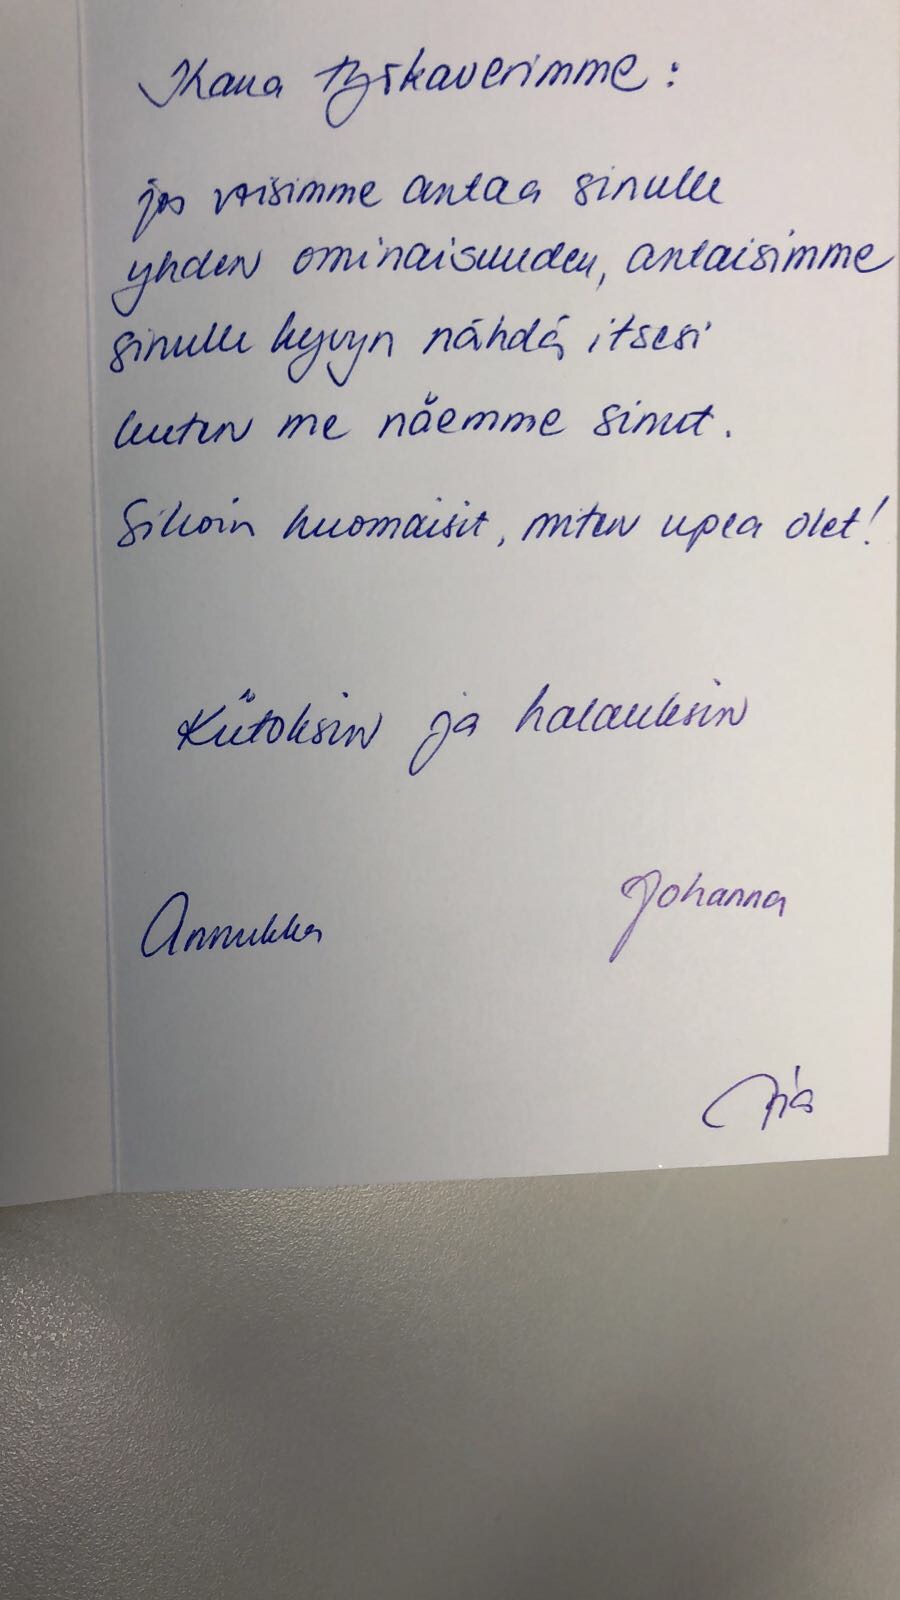 Ihana työkaverimme:
jos voisimme antaa sinulle
yhden ominaisuuden, antaisimme
sinulle kyvyn nähdä itsesi
kuten me näemme sinut.
Silloin huomaisit, miten upea olet!
Kiitoksin ja halauksin
Johanna
Annukka